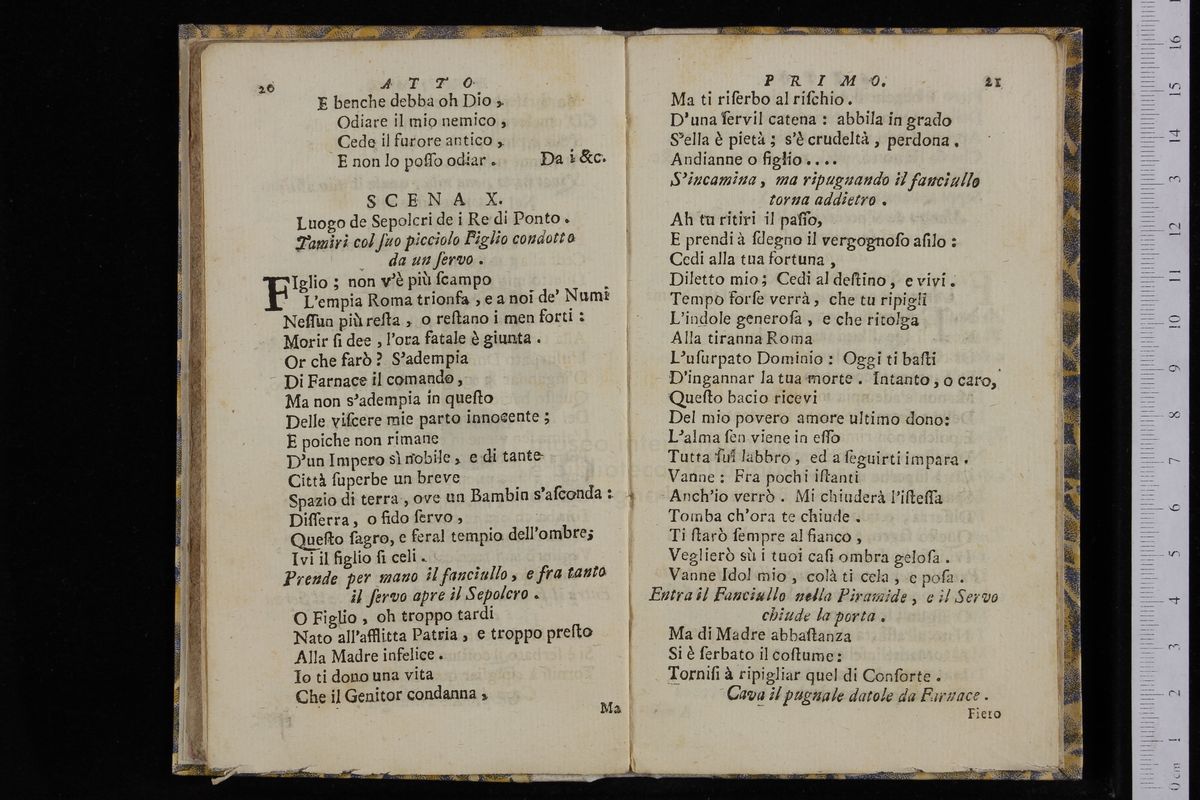 20 ATTO
E benche debba oh Dio,
Odiare il mio nemico,
Cede il furore antico,
E non lo poſſo odiar. Da i &c.
SCENA X.
Luogo de Sepolcri de i Re di Ponto.
Tamiri col ſuo picciolo Figlio condotto
da un ſervo.
FIglio; non v'è più ſcampo
L'empia Roma trionfa, e a noi de' Numi
Neſſun più reſta, o reſtano i men forti:
Morir ſi dee, l'ora fatale è giunta.
Or che farò? S'adempia
Di Farnace il comando,
Ma non s'adempia in queſto
Delle viſcere mie parto innocente;
E poiche non rimane
D'un Impero sì nobile, e di tante
Città ſuperbe un breve
Spazio di terra, ove un Bambin s'aſconda:
Diſſerra, o fido ſervo,
Queſto ſagro, e feral tempio dell'ombre;
Ivi il figlio ſi celi.
Prende per mano il fanciullo, e fra tanto
il ſervo apre il Sepolcro.
O Figlio, oh troppo tardi
Nato all'afflitta Patria, e troppo preſto
Alla Madre infelice.
Io ti dono una vita
Che il Genitor condanna,
Ma
PRIMO. 21
Ma ti riſerbo al riſchio.
D'una ſervil catena: abbila in grado
S'ella è pietà; s'è crudeltà, perdona.
Andianne o figlio....
S'incamina, ma ripugnando il fanciullo
torna addietro.
Ah tu ritiri il paſſo,
E prendi à ſdegno il vergognoſo aſilo:
Cedi alla tua fortuna,
Diletto mio; Cedi al deſtino, e vivi.
Tempo forſe verrà, che tu ripigli
L'indole generoſa, e che ritolga
Alla tiranna Roma
L'uſurpato Dominio: Oggi ti baſti
D'ingannar la tua morte. Intanto, o caro,
Queſto bacio ricevi
Del mio povero amore ultimo dono:
L'alma ſen viene in eſſo
Tutta ſul labbro, ed a ſeguirti impara.
Vanne: Fra pochi iſtanti
Anch'io verrò. Mi chiuderà l'iſteſſa
Tomba ch'ora te chiude.
Ti ſtarò ſempre al fianco,
Veglierò sù i tuoi caſi ombra geloſa.
Vanne Idol mio, colà ti cela, e poſa.
Entra il Fanciullo nella Piramide, e il Servo
chiude la porta.
Ma di Madre abbaſtanza
Si è ſerbato il coſtume:
Torniſi à ripigliar quel di Conſorte.
Cava il pugnale datole da Farnace.
Fiero